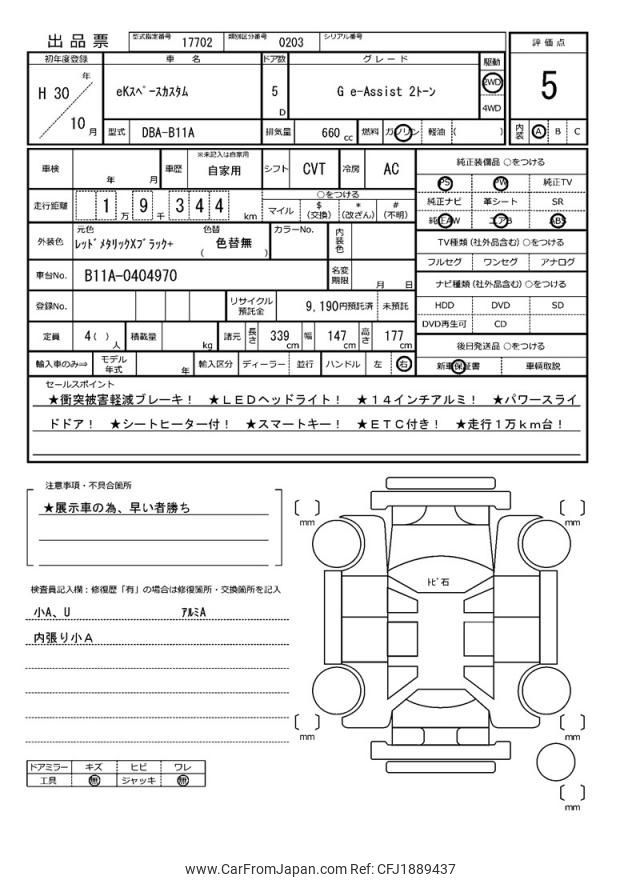 出品票 型式指定番号 17702 類別区分番号 0203 シリアル番号
初年度登録 車名 ドア数 グレード 駆動 評価点
H 30 年 10 月 eKｽﾍﾟｰｽカスタム 5 D G e-Assist 2トーン 2WD 4WD 5
型式 DBA-B11A 排気量 660 cc 燃料 ガソリン 軽油 ( ) 内装 A B C
車検 年 月 車歴 ※未記入は自家用 自家用 シフト CVT 冷房 AC
純正装備品 ○をつける
PS PW 純正TV
走行距離 1 万 9 千 3 4 4 km
○をつける
マイル $ (交換) * (改ざん) # (不明)
純正ナビ 革シート SR
純正AW エアB ABS
外装色 元色 ﾚｯﾄﾞﾒﾀﾘｯｸXﾌﾞﾗｯｸ+ 色替 ( 色替無 ) カラーNo. 内装色
TV種類 (社外品含む) ○をつける
フルセグ ワンセグ アナログ
車台No. B11A-0404970 名変期限 月 日
ナビ種類 (社外品含む) ○をつける
HDD DVD SD
DVD再生可 CD
登録No. リサイクル預託金 9,190円預託済 未預託
定員 4 ( ) 人 積載量 kg 諸元 長さ 339 cm 幅 147 cm 高さ 177 cm
後日発送品 ○をつける
輸入車のみ⇒ モデル年式 年 輸入区分 ディーラー 並行 ハンドル 左 右
新車保証書 車輌取説
セールスポイント
★衝突被害軽減ブレーキ！ ★ＬＥＤヘッドライト！ ★１４インチアルミ！ ★パワースライ
ドドア！ ★シートヒーター付！ ★スマートキー！ ★ＥＴＣ付き！ ★走行１万ｋｍ台！
注意事項・不具合箇所
★展示車の為、早い者勝ち
検査員記入欄：修復歴「有」の場合は修復箇所・交換箇所を記入
小A、U ｱﾙﾐA
内張り小A
ﾄﾋﾞ石
mm
mm
mm
mm
mm
ドアミラー キズ ヒビ ワレ
工具 無 ジャッキ 無
www.CarFromJapan.com Ref: CFJ1889437